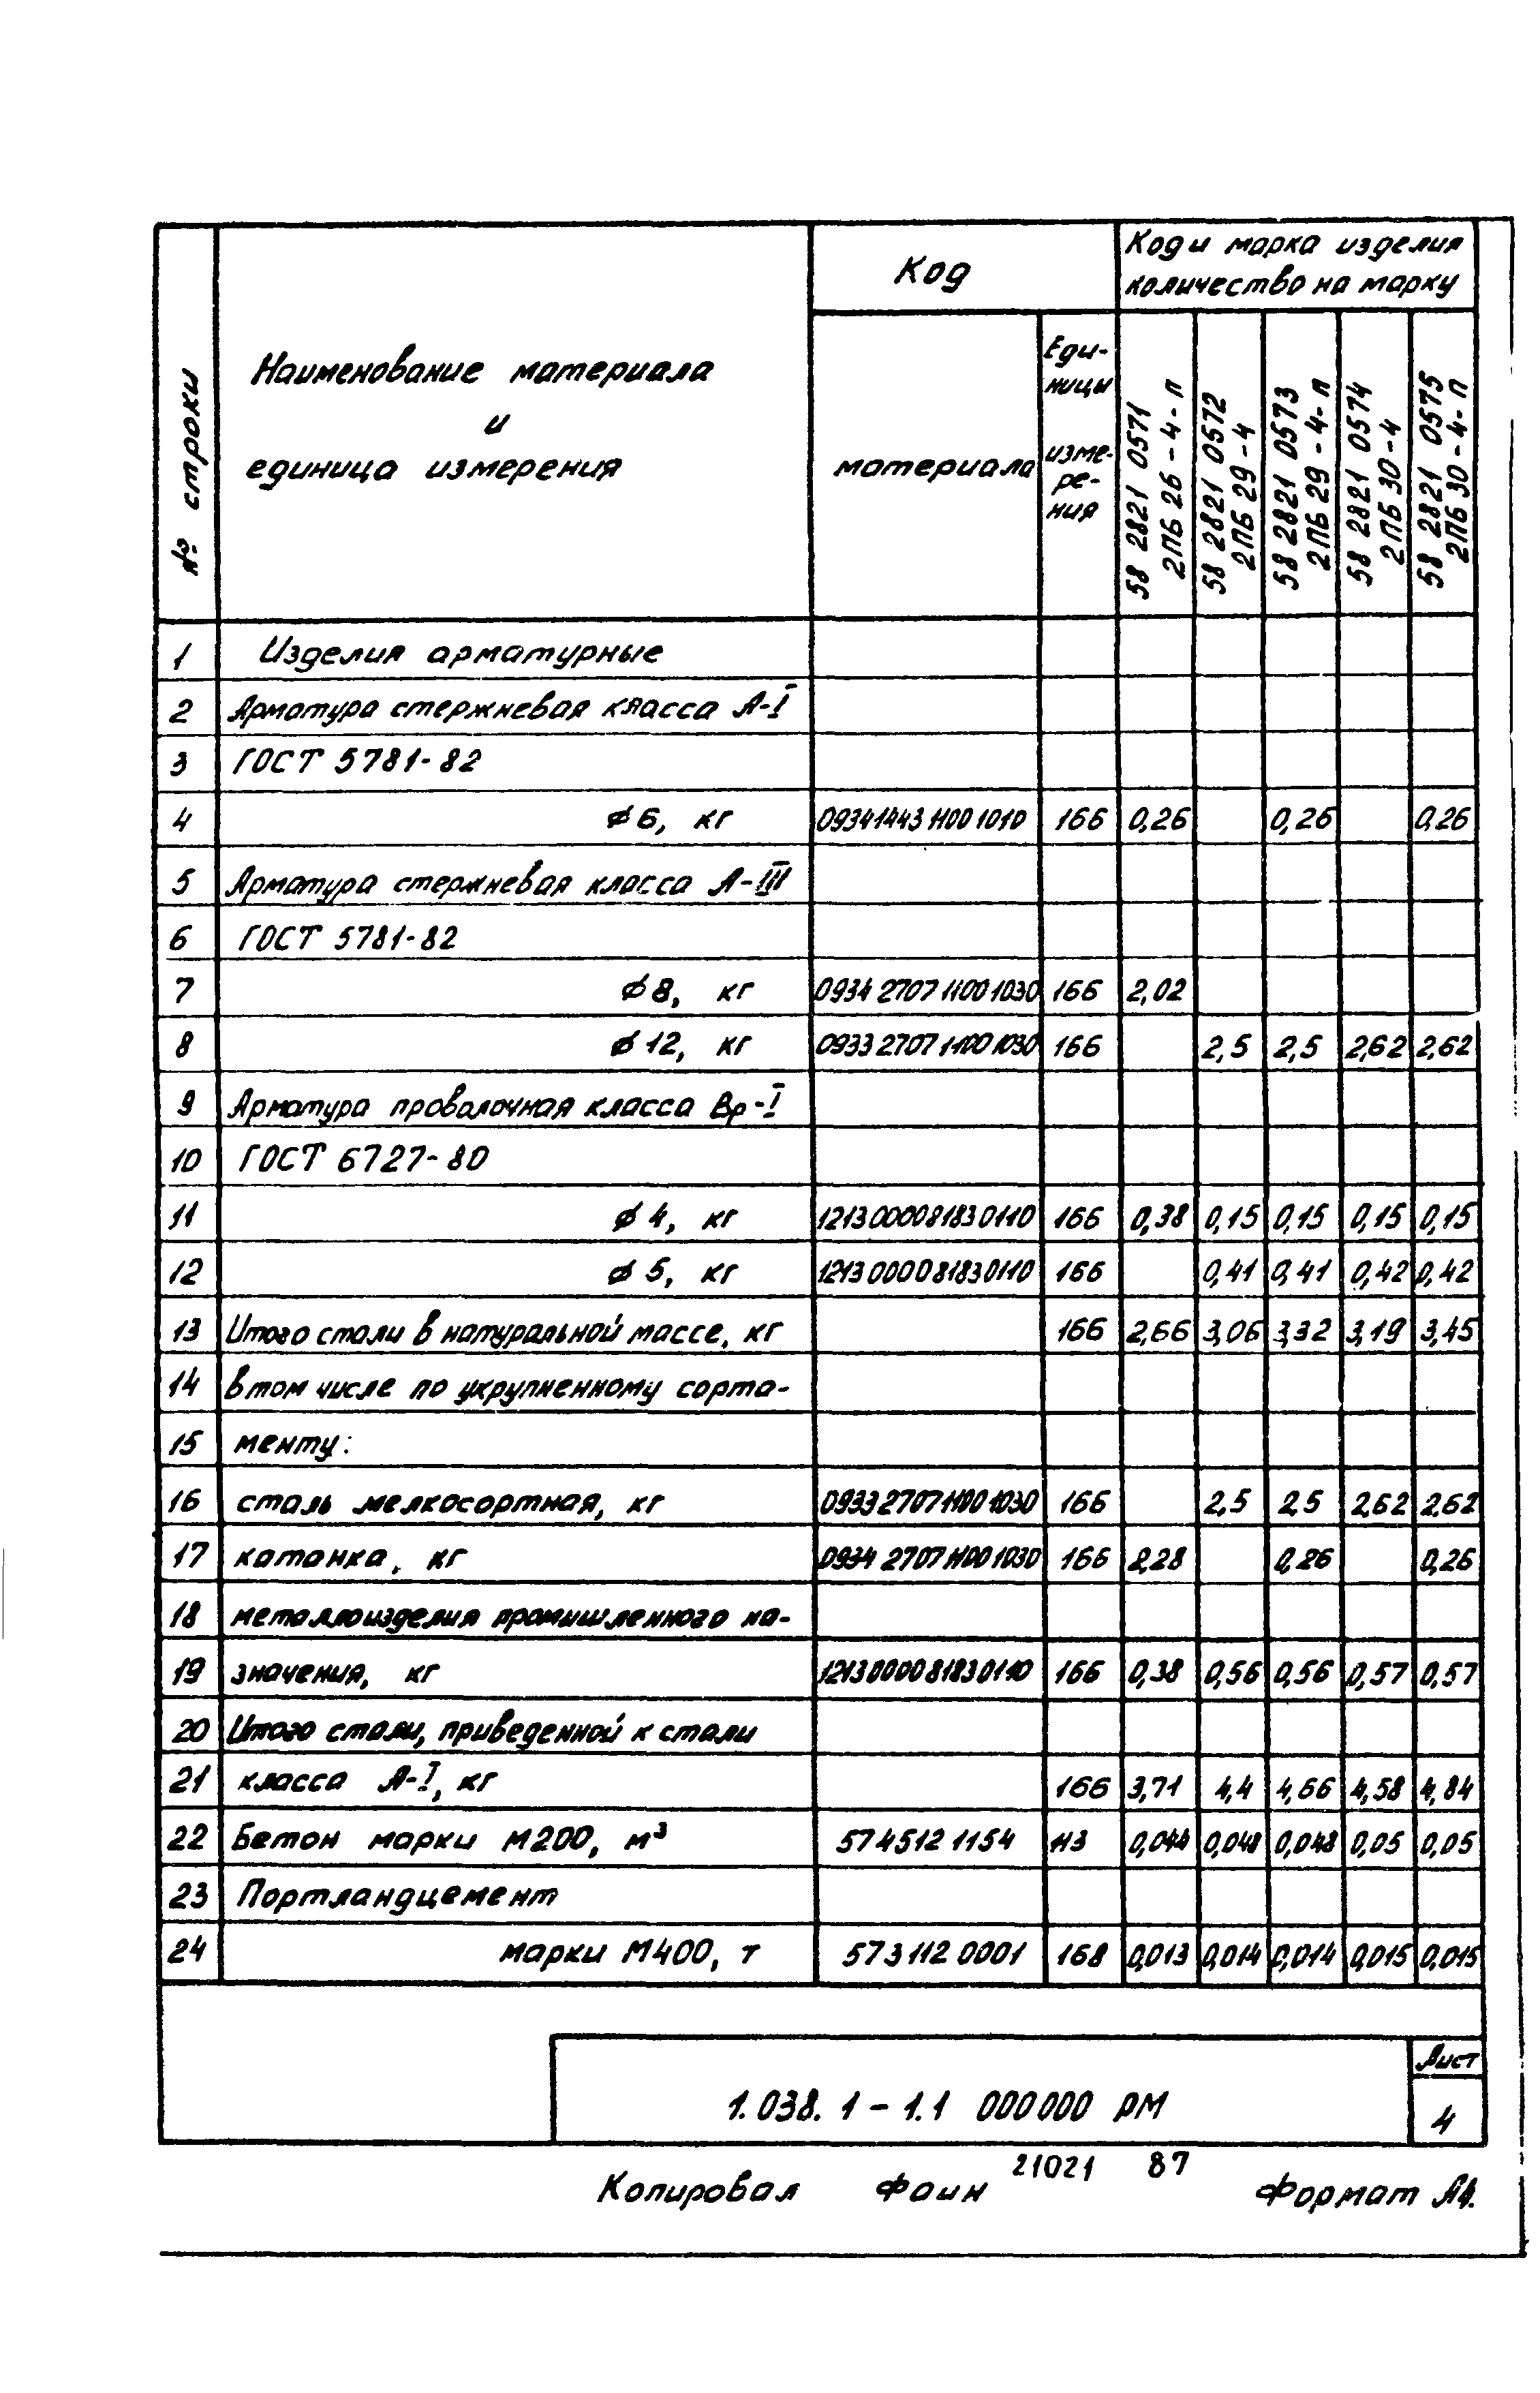 № строки
Наименование материала
и
единица измерения
Код
материала
Еди-
ницы
изме-
ре-
ния
Код и марка изделия
количество на марку
58 2821 0571
2ПБ 26-4-п
58 2821 0572
2ПБ 29-4
58 2821 0573
2ПБ 29-4-п
58 2821 0574
2ПБ 30-4
58 2821 0575
2ПБ 30-4-п
1 Изделия арматурные
2 Арматура стержневая класса А-I
3 ГОСТ 5781-82
4 ⌀6, кг 09341443 1100 1010 166 0,26 0,26 0,26
5 Арматура стержневая класса А-III
6 ГОСТ 5781-82
7 ⌀8, кг 0934 2707 1100 1030 166 2,02
8 ⌀12, кг 0933 2707 1100 1030 166 2,5 2,5 2,62 2,62
9 Арматура проволочная класса Вр-I
10 ГОСТ 6727-80
11 ⌀4, кг 1213 0000 8183 0110 166 0,38 0,15 0,15 0,15 0,15
12 ⌀5, кг 1213 0000 8183 0110 166 0,41 0,41 0,42 0,42
13 Итого стали в натуральной массе, кг 166 2,66 3,06 3,32 3,19 3,45
14 в том числе по укрупненному сорта-
15 менту:
16 сталь мелкосортная, кг 0933 2707 1100 1030 166 2,5 2,5 2,62 2,62
17 катанка, кг 0934 2707 1100 1030 166 2,28 0,26 0,26
18 металлоизделия промышленного на-
19 значения, кг 1213 0000 8183 0110 166 0,38 0,56 0,56 0,57 0,57
20 Итого стали, приведенной к стали
21 класса А-I, кг 166 3,71 4,4 4,66 4,58 4,84
22 Бетон марки М200, м³ 574512 1154 113 0,044 0,048 0,048 0,05 0,05
23 Портландцемент
24 марки М400, т 573 112 0001 168 0,013 0,014 0,014 0,015 0,015
1.038.1-1.1 000000 РМ
Лист
4
21021 87
Копировал Фаин Формат А4.